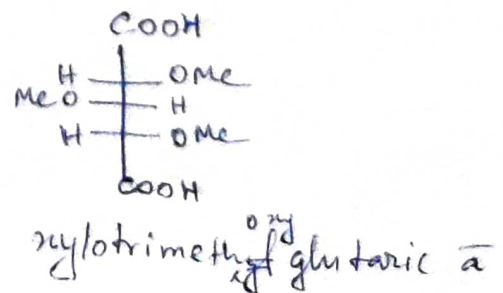 COOH
H OMe
MeO H
H OMe
COOH
xylotrimethoxy glutaric ā